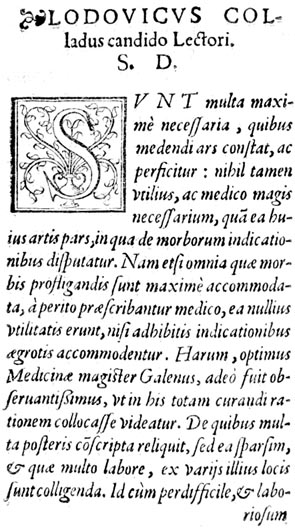 LODOVICVS COL-
ladus candido Lectori.
S. D.
SVNT multa maxi-
mè neceſſaria, quibus
medendi ars conſtat, ac
perficitur: nihil tamen
vtilius, ac medico magis
neceſſarium, quã ea hu-
ius artis pars, in qua de morborum indicatio-
nibus diſputatur. Nam etſi omnia quæ mor-
bis profligandis ſunt maximè accommoda-
ta, à perito præſcribantur medico, ea nullius
vtilitatis erunt, niſi adhibitis indicationibus
ægrotis accommodentur. Harum, optimus
Medicinæ magiſter Galenus, adeò fuit ob-
ſeruantiſſimus, vt in his totam curandi ra-
tionem collocaſſe videatur. De quibus mul-
ta poſteris cõſcripta reliquit, ſed ea ſparſim,
& quæ multo labore, ex varijs illius locis
ſunt colligenda. Id cùm perdifficile, & labo-
rioſum